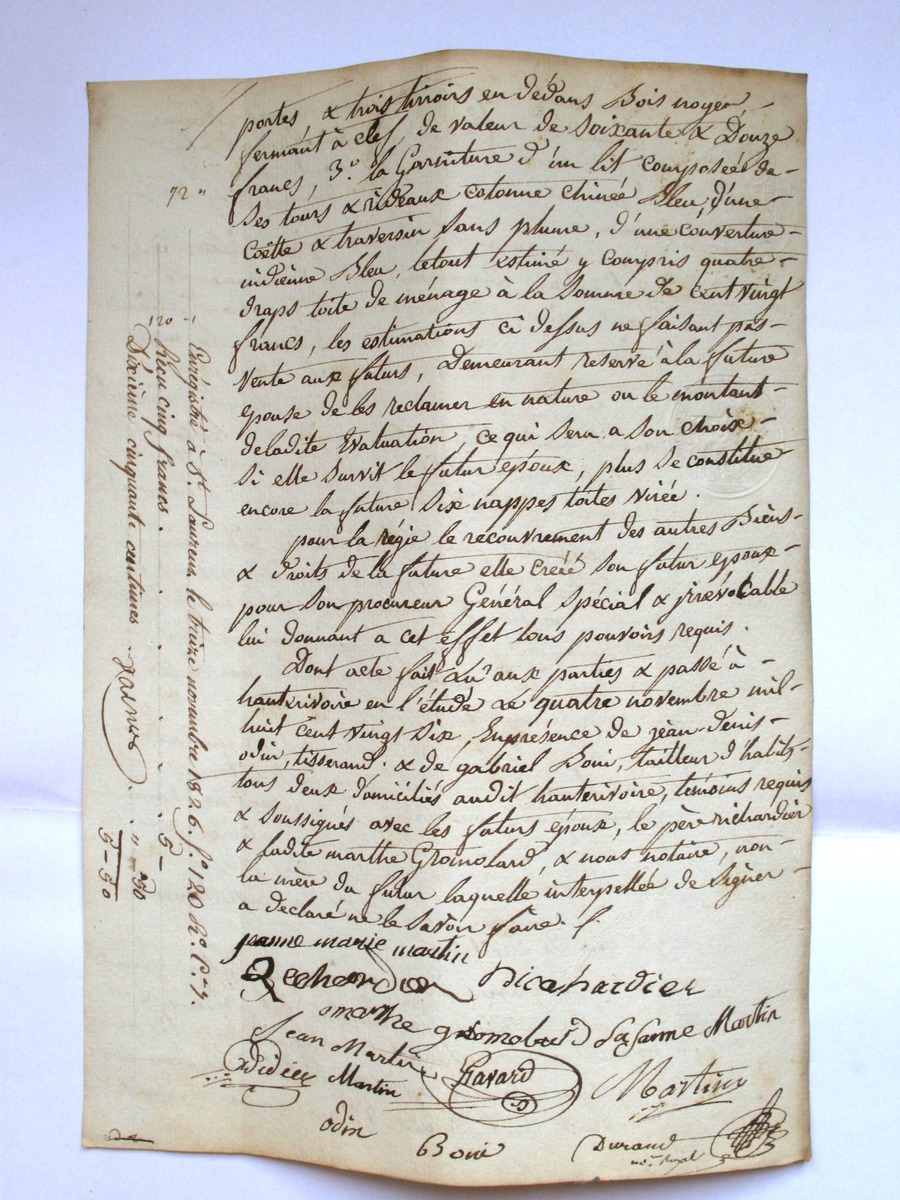 portes, & trois tirroirs en dédans Bois noyer
fermant à clef, de valeur de soixante & Douze
francs, 3.º la Garniture d'un lit composée de
72 "
Ses tours & rideaux cotonne chinée Bleu, d'une
coëtte & traversin sans plume, d'une couverture
indienne Bleu, letout estimé y compris quatre
draps toile de ménage à la Somme de cent vingt
120 "
francs, les estimations ci dessus ne faisant pas
vente aux futurs, demeurant reservé à la future
epouse de les reclamer en nature ou le montant
deladite Evaluation, ce qui sera a son choix
si elle survit le futur epoux, plus se constitue
encore la future six nappes toiles
pour la régie le recouvrement des autres Biens
& droits de la future elle créé son futur epoux
pour son procureur Général spécial & irrévocable
lui donnant a cet effet tous pouvoirs requis.
Dont acte fait Lu aux parties & passé à
hauterivoire en l'étude Le quatre novembre mil
huit cent vingt six, Enprésence de jean denis
odin, tisserand & de gabriel Boni, tailleur d'habits
tous deux domiciliés audit hauterivoire, temoins requis
& soussignés avec les futurs époux, le père richardier
& ladite marthe Gromolard, & nous notaire, non
la mère du futur laquelle interpellée de signer
a declaré ne le savoir faire.
jeanne marie martin
Richardier
marthe gromolard Sasanne Martin
Jean Martin
Didiee Martin
Gravard
Martin
odin
Boni
Durand
no.re Royal
Enregistré à St. Laurent le treize novembre 1826. fo 120 Ro. C.se 7.
Reçu cinq francs. 5 -
Dixième cinquante centimes. " 50
5 - 50